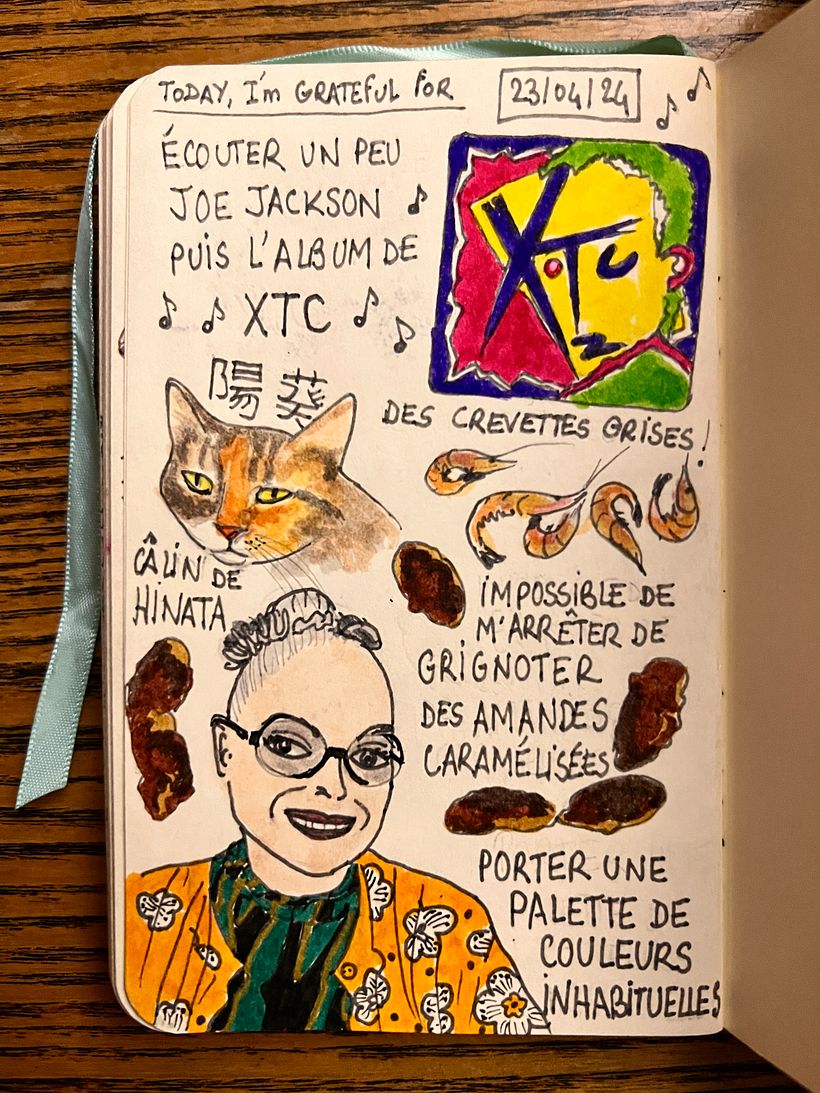 TODAY, I'm GRATEFUL FOR
23/04/24
ÉCOUTER UN PEU
JOE JACKSON
PUIS L'ALBUM DE
XTC
XTC
陽葵
DES CREVETTES GRISES!
CÂLIN DE
HINATA
IMPOSSIBLE DE
M'ARRÊTER DE
GRIGNOTER
DES AMANDES
CARAMÉLISÉES
PORTER UNE
PALETTE DE
COULEURS
INHABITUELLES